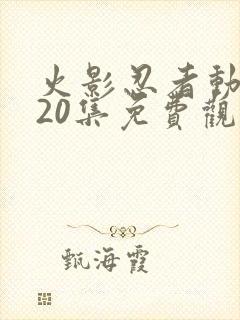 火影忍者動
20集免費觀
甄海霞